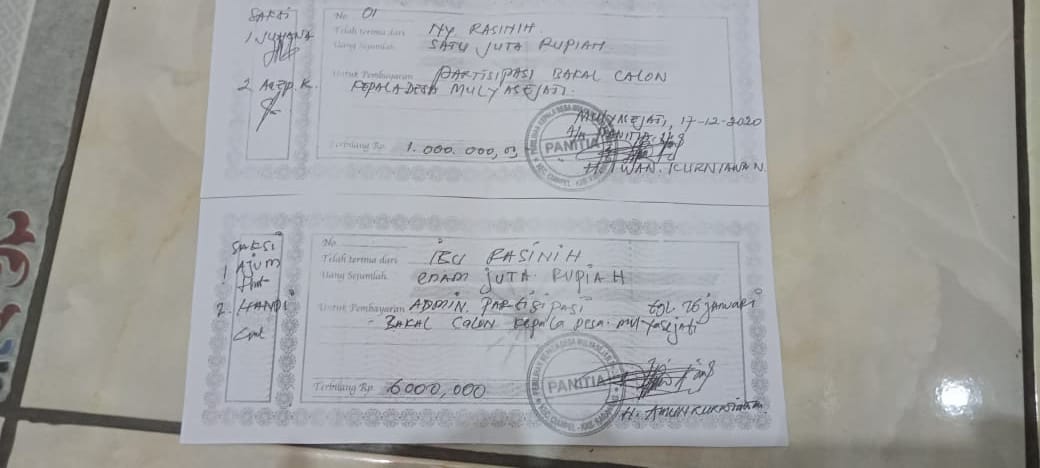 SAKSI
1 JUHANA
2 ASEP. K.
No 01
Telah terima dari NY RASINIH
Uang Sejumlah SATU JUTA RUPIAH
Untuk Pembayaran PARTISIPASI BAKAL CALON
KEPALA DESA MULYASEJATI.
MULYASEJATI, 17-12-2020
PANITIA
Terbilang Rp. 1.000.000,
H. IWAN. KURNIAWAN
SAKSI
1 AJUM
2. HANDI
No
Telah terima dari IBU RASINIH
Uang Sejumlah ENAM JUTA RUPIAH
Untuk Pembayaran ADMIN. PARTISIPASI januari
- BAKAL CALON Kepala Desa. mulyasejati
PANITIA
Terbilang Rp. 6000,000